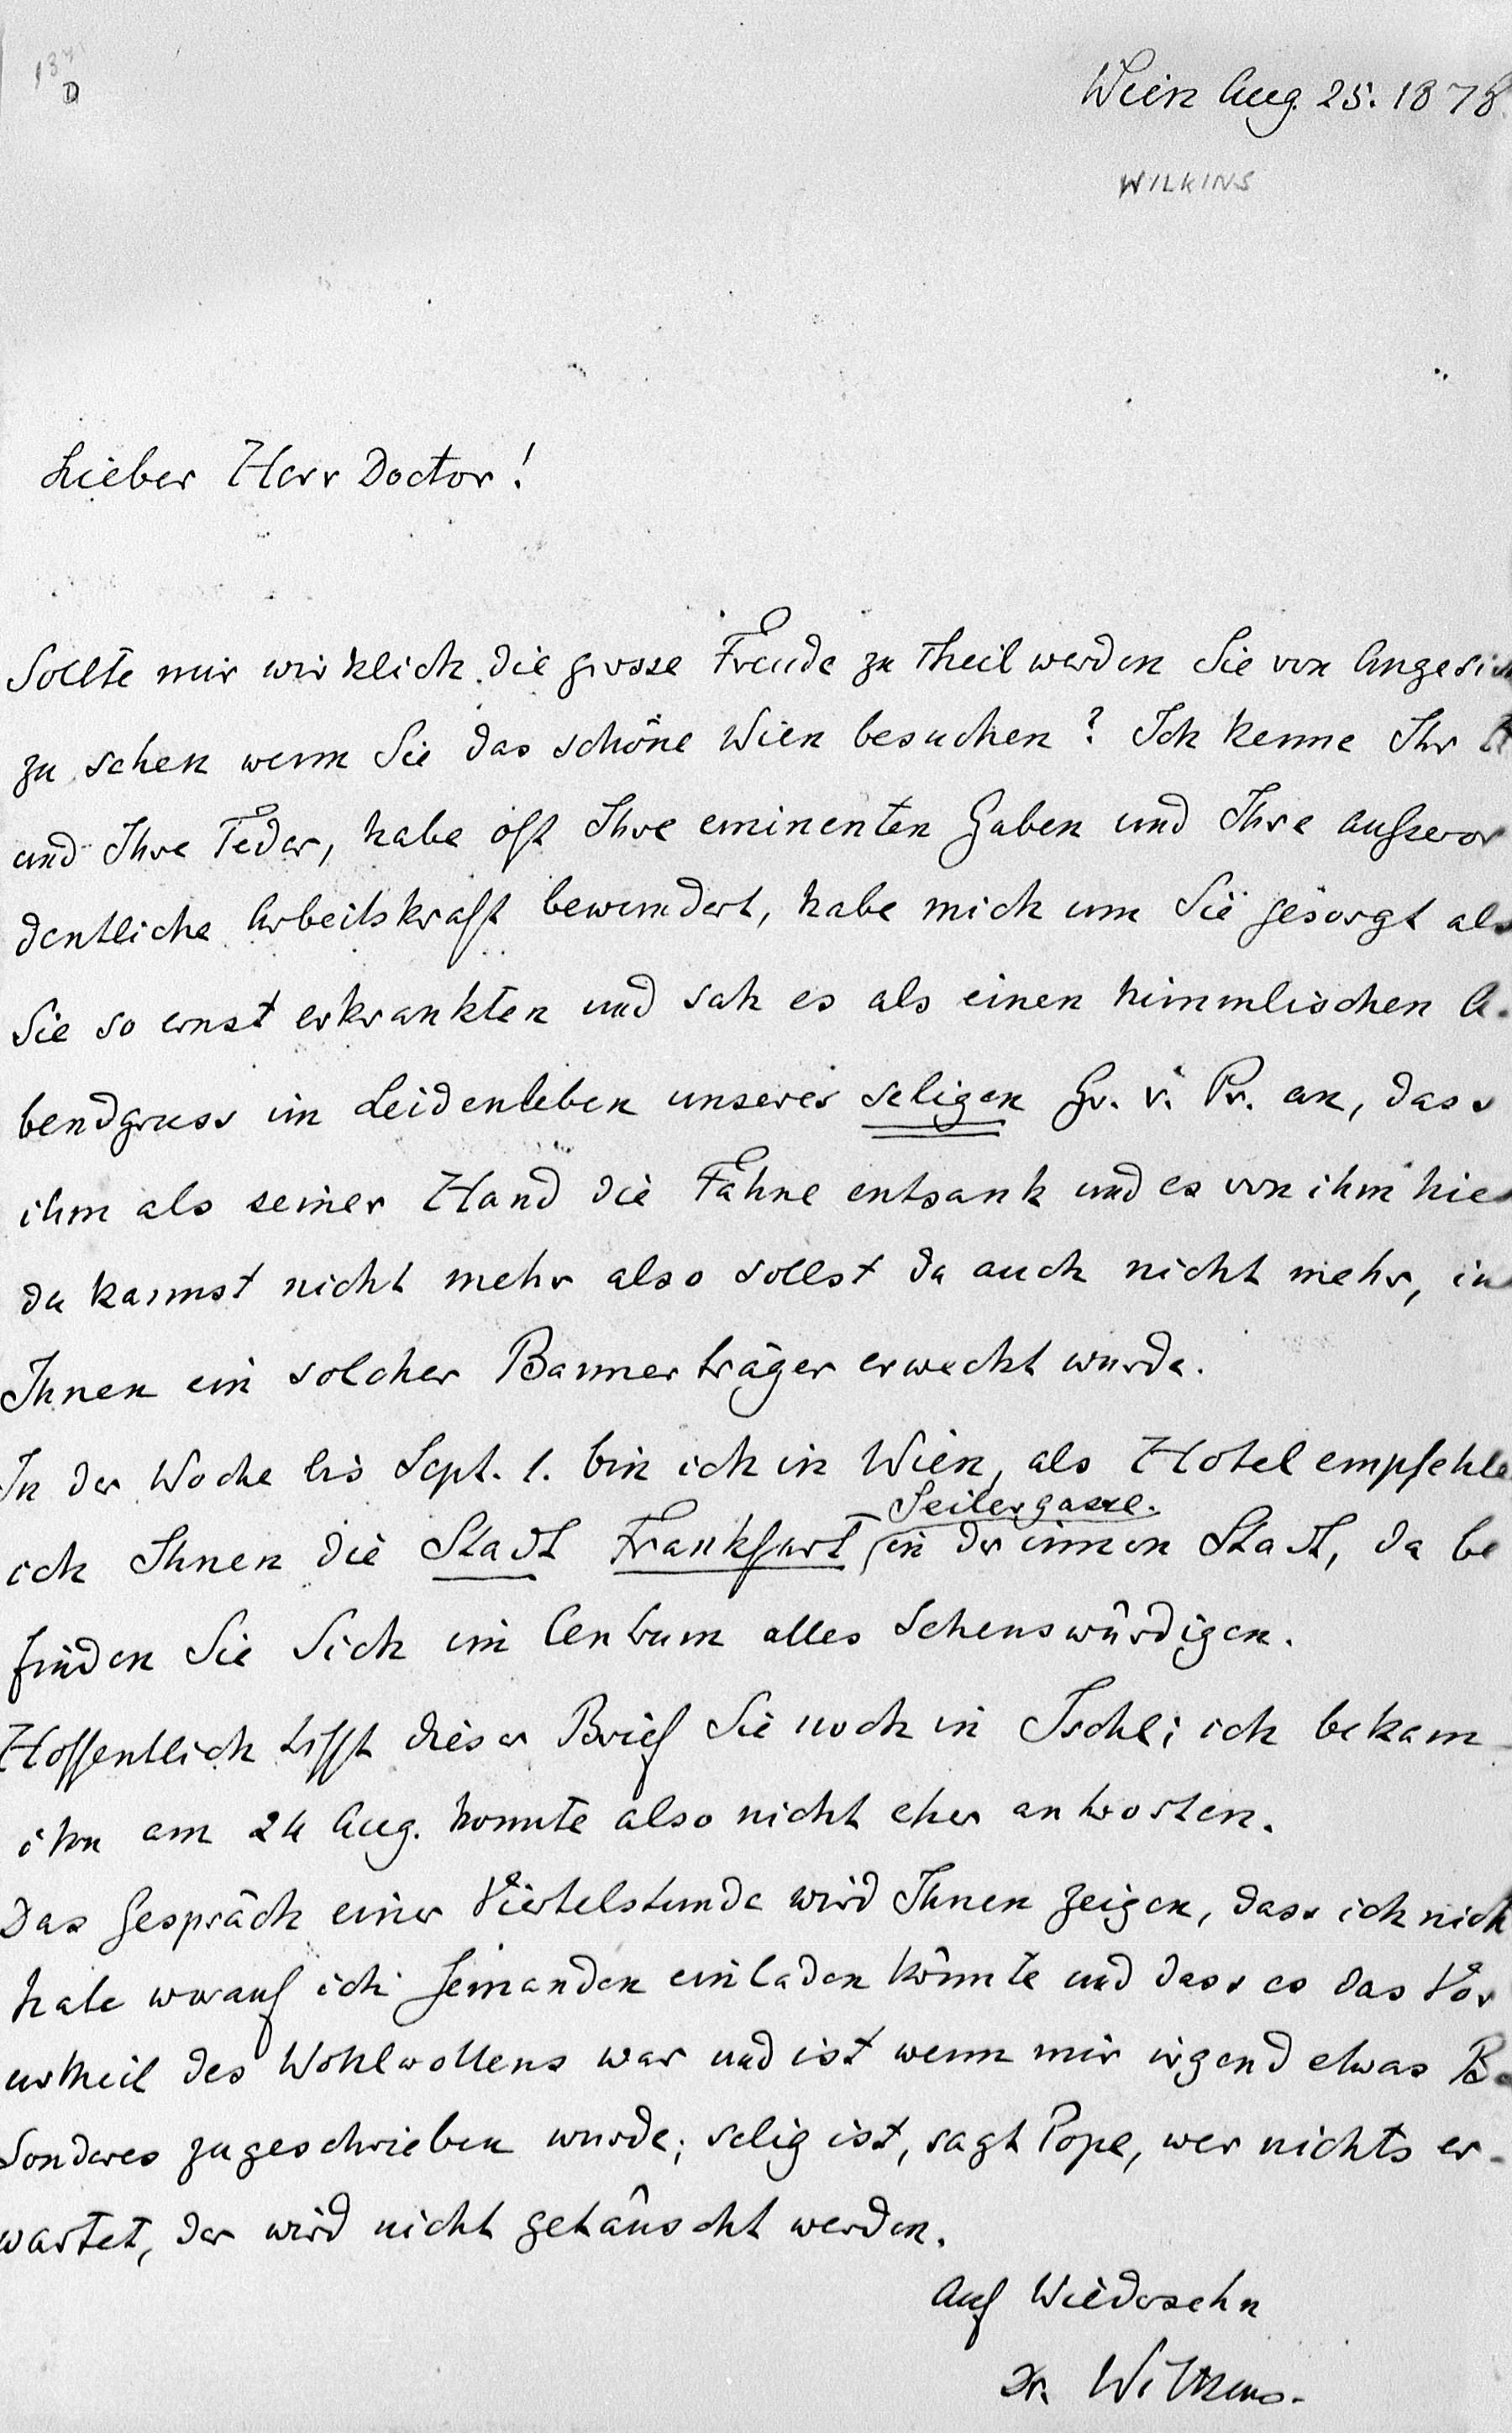 D
Wien Aug. 25. 1878.
WILKINS
Lieber Herr Doctor!
Sollte mir wirklich die grosse Freude zu Theil werden Sie von Angesich
zu sehen wenn Sie das schöne Wien besuchen? Ich kenne Ihr
und Ihre Feder, habe oft Ihre eminenten Gaben und Ihre aufseror
dentliche Arbeitskraft bewundert, habe mich um Sie gesorgt als
Sie so ernst erkrankten und sah es als einen himmlischen A-
bendgruss im Leidenleben unseres seligen Gr. v. Pr. an, dass
ihm als seiner Hand die Fahne entsank und es von ihm hies
du kannst nicht mehr also sollst du auch nicht mehr, in
Ihnen ein solcher Bannerträger erweckt wurde.
In der Woche bis Sept. 1. bin ich in Wien, als Hotel empfehle
Seilergasse.
ich Ihnen die Stadt Frankfurt in der innern Stadt, da be
finden Sie Sich im Centrum alles Sehenswürdigen.
Hoffentlich trifft dieser Brief Sie noch in Ischl; ich bekam
ihn am 24 Aug. konnte also nicht eher antworten.
Das Gespräch einer Viertelstunde wird Ihnen zeigen, dass ich nich
habe worauf ich Jemanden einladen könnte und dass es das Vor
urtheil des Wohlwollens war und ist wenn mir irgend etwas Be
sonderes zugeschrieben wurde; selig ist, sagt Pope, wer nichts er-
wartet, der wird nicht getäuscht werden.
Auf Wiedersehn
Dr. Wilkens.